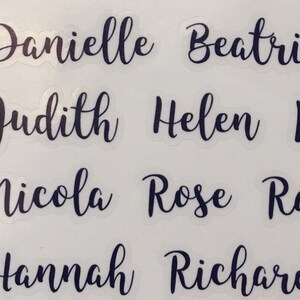 Danielle Beatri
Judith Helen
Nicola Rose Ro
Hannah Richar